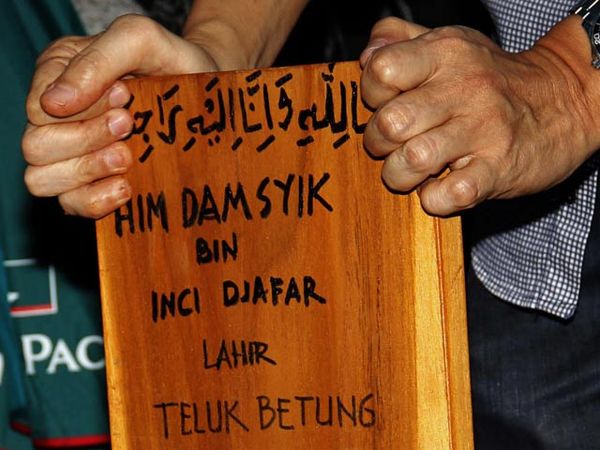 لِلّٰهِ وَاِنَّا اِلَيْهِ رَاجِ
HIM DAMSYIK
BIN
INCI DJAFAR
LAHIR
TELUK BETUNG
PAC